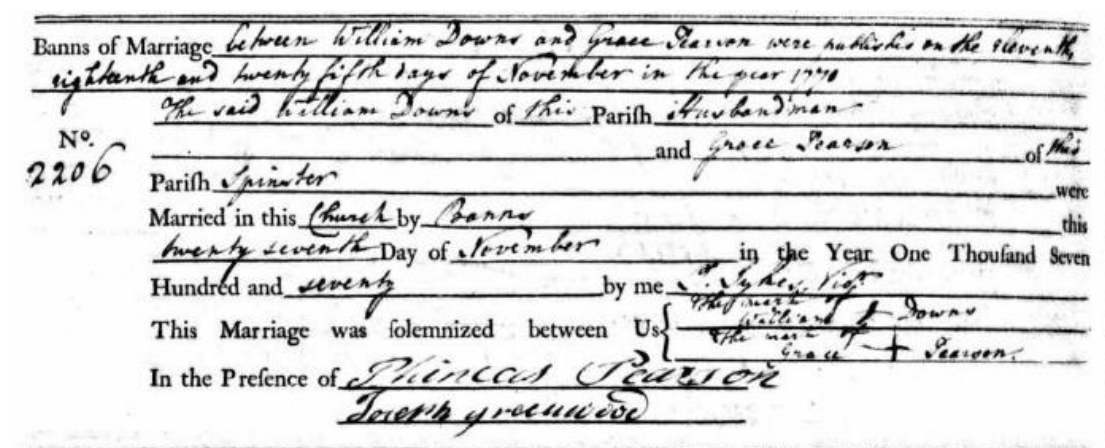 Banns of Marriage between William Downs and Grace Pearson were publish'd on the eleventh,
eighteenth and twenty fifth days of November in the year 1770
The said William Downs of this Pariſh Husbandman
No. and Grace Pearson of this
2206 Pariſh Spinster were
Married in this Church by Banns this
twenty seventh Day of November in the Year One Thouſand Seven
Hundred and seventy by me Sykes,
The mark of
This Marriage was ſolemnized between Us { William + Downs
The mark of
Grace + Pearson.
In the Preſence of Phineas Pearson
Joseph greenwood